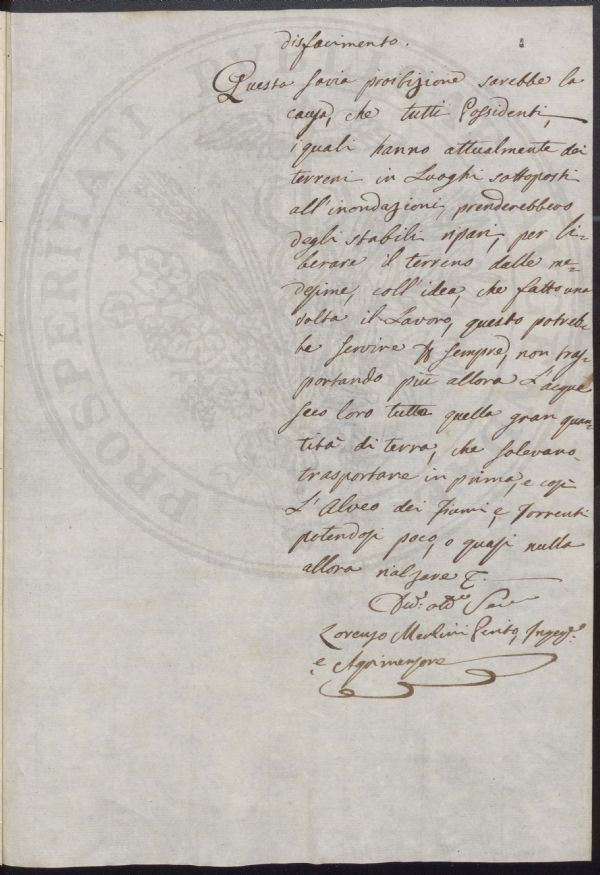 disfacimento.
Questa savia proibizione sarebbe la
causa, che tutti Possidenti,
i quali hanno attualmente dei
terreni in Luoghi sottoposti
all'inondazioni, prenderebbero
degli stabili ripari, per li-
berare il terreno dalle me-
desime, coll'idea, che fatto una
volta il Lavoro, questo potreb-
be servire p sempre, non tras-
portando più allora L'acque
seco loro tutta quella gran quan-
tità di terra, che solevano
trasportare in prima, e così
L'Alveo dei Fiumi, e Torrenti
potendosi poco, o quasi nulla
allora rialzare
Lorenzo Merlini Perito, Ingeg.e
e Agrimensore
PROSPERITATI PVBLICAE